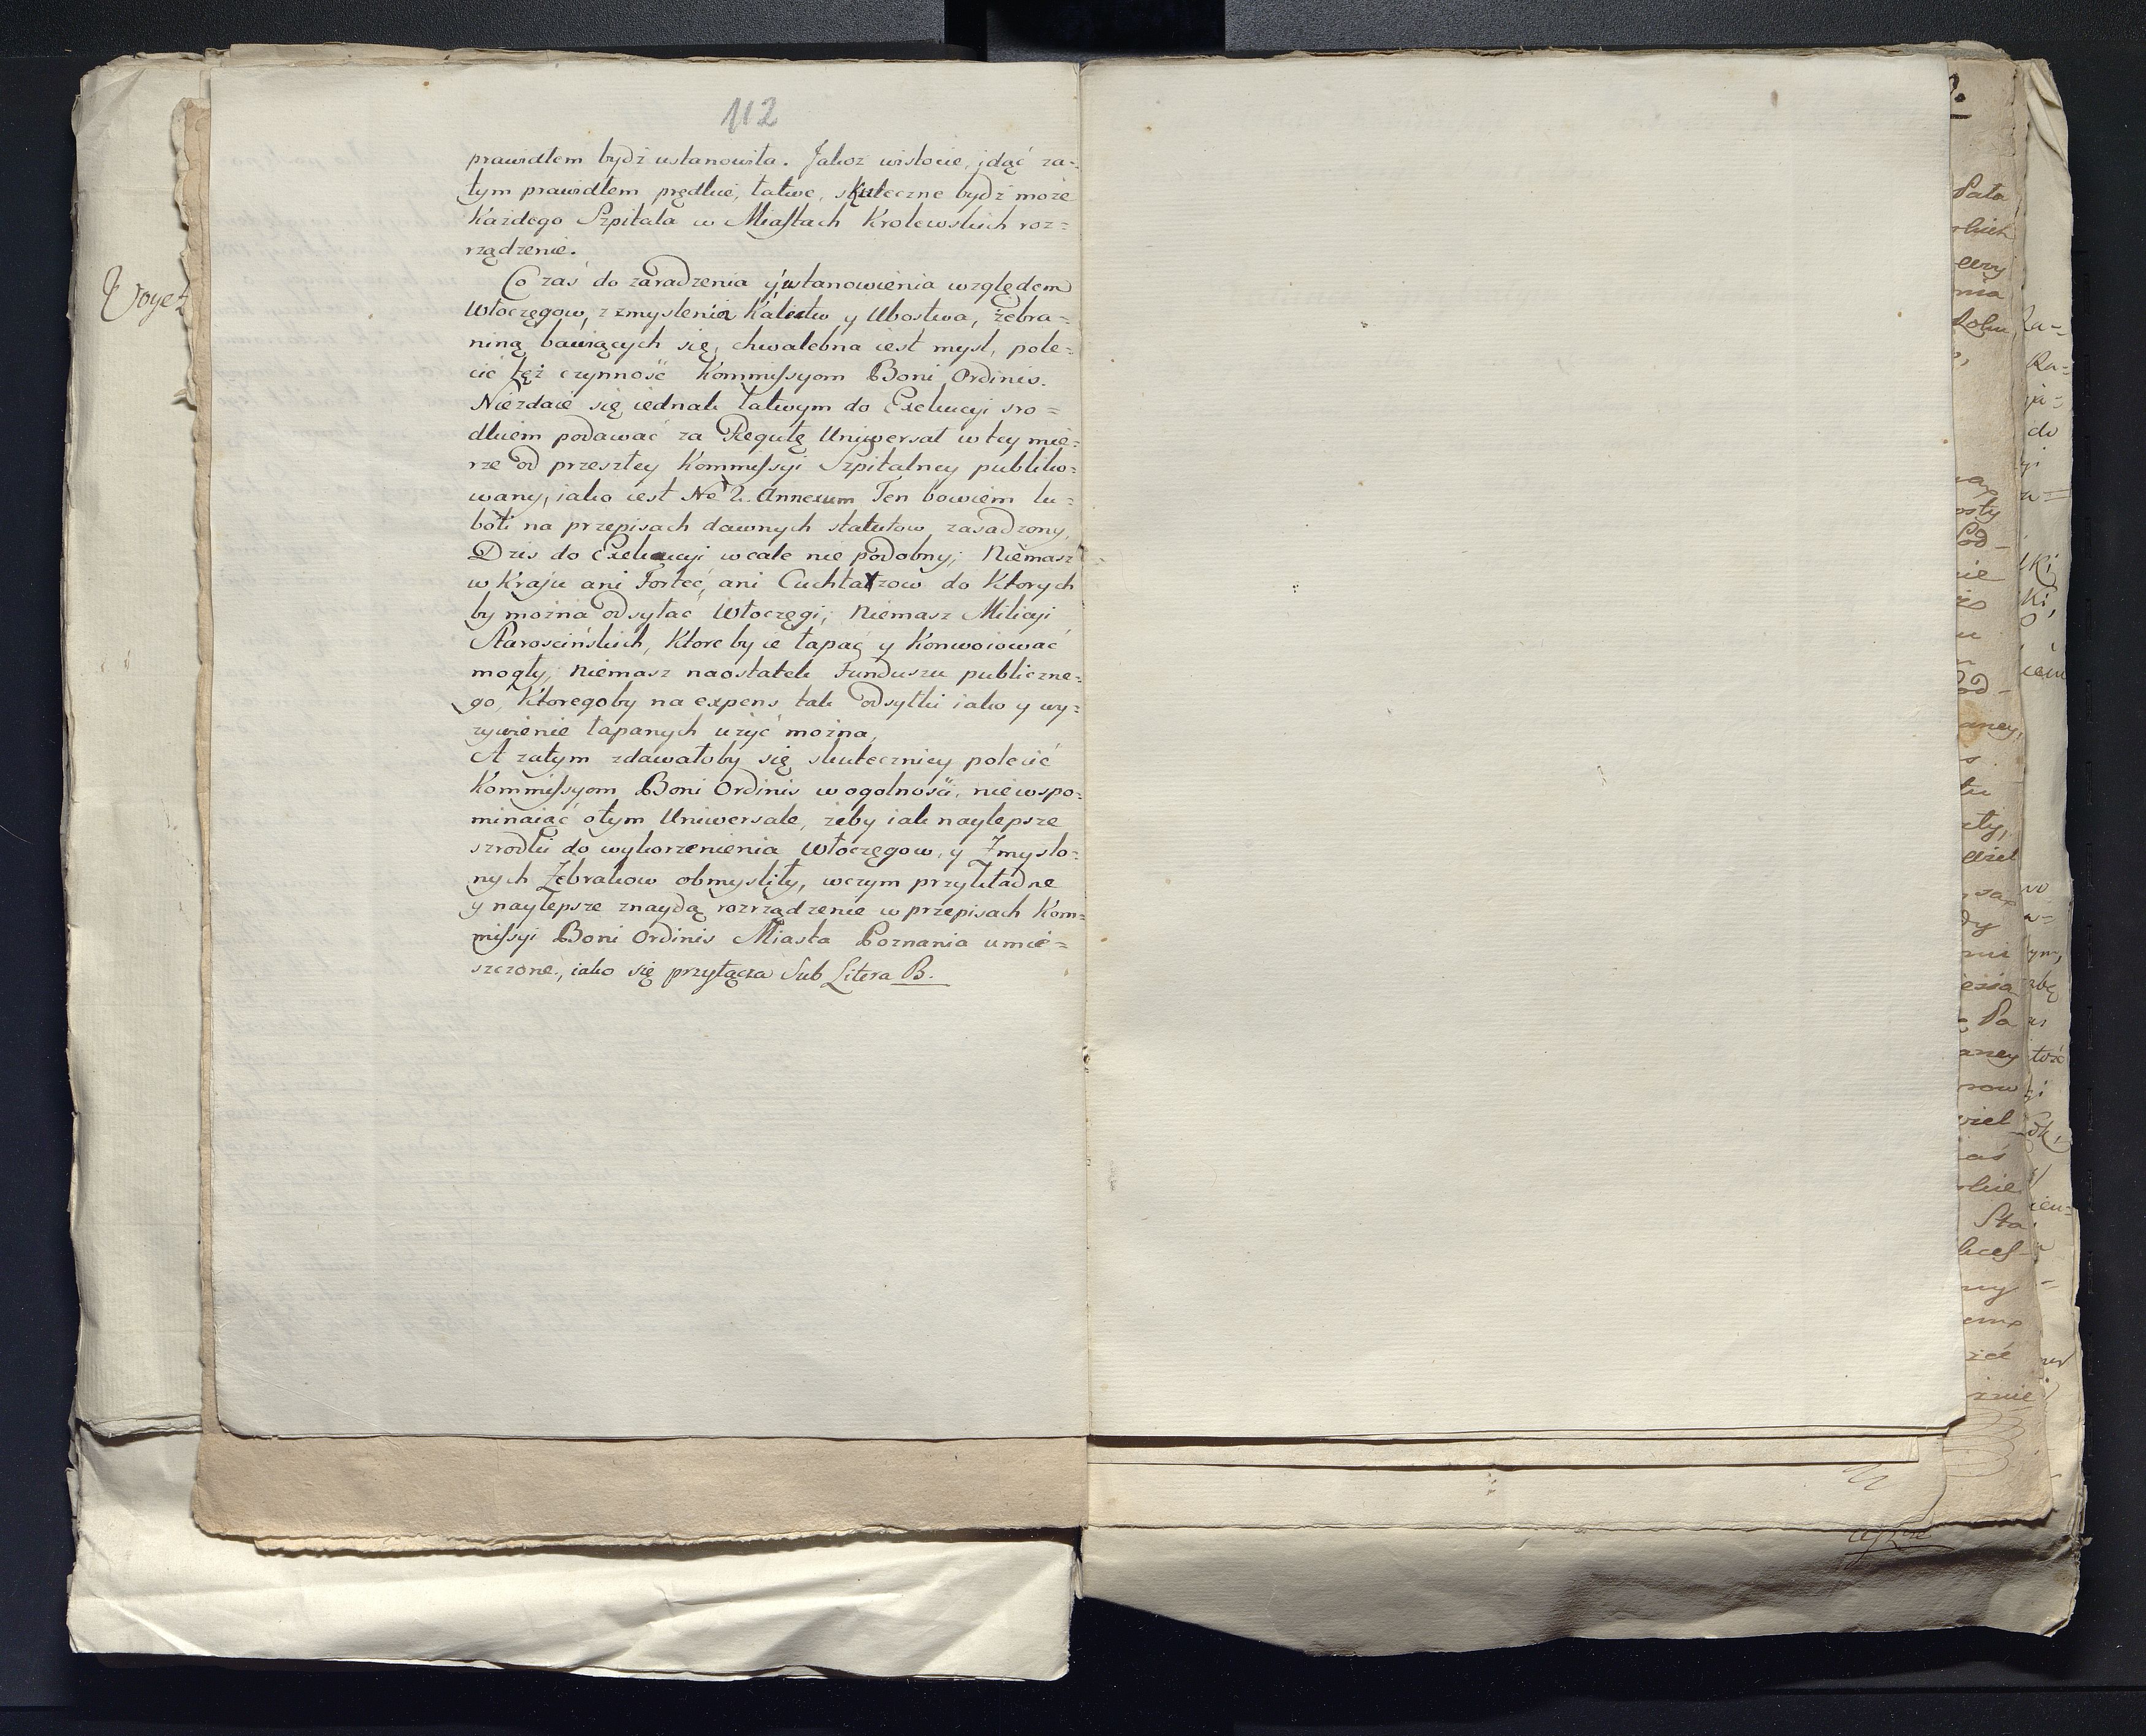 112
prawidłem bydź ustanowiła. Jakoż wistocie, idąć za=
tym prawidłem prędkie, łatwe, skuteczne bydź może
Każdego Szpitala w Miastach Krolewskich roz=
rządzenie.
Co zaś do zaradzenia y ustanowienia względem
Włoczęgow, z zmyslenia Kalectw y Ubostwa, żebra=
niną bawiących się, chwalebna iest mysl, pole=
cić tęż czynność Kommissyom Boni Ordinis.
Niezdaie się iednak łatwym do Exekucyi sro=
dkiem podawać za Regułę Uniwersał w tey mie=
rze od przeszłey Kommissyi Szpitalney publiko=
wany, iako iest Nō 2. Annexum Ten bowiem lu=
boli na przepisach dawnych statutow zasadzony,
Dzis do Exekucyi wcale nie podobny; Niemasz
w Kraju ani Fortec, ani Cuchtauzow do Ktorych
by można odsyłać Włoczęgi; Niemasz Milicyi
Staroscińskich, Ktore by ie łapać y Konwoiować
mogły; Niemasz naostatek Funduszu publiczne=
go, Ktoregoby na expens tak odsyłki iako y wy=
żywienie łapanych użyć można,
A zatym zdawałoby się skuteczniey polecić
Kommissyom Boni Ordinis w ogolności, nie wspo=
minaiąć o tym Uniwersale, żeby iak naylepsze
szrodki do wykorzenienia Włoczęgow, y Zmyslo=
nych Żebrakow obmysliły, w czym przykładne
y naylepsze znaydą rozrządzenie w przepisach Kom=
missyi Boni Ordinis Miasta Poznania umie=
szczone, iako się przyłącza Sub Litera B.